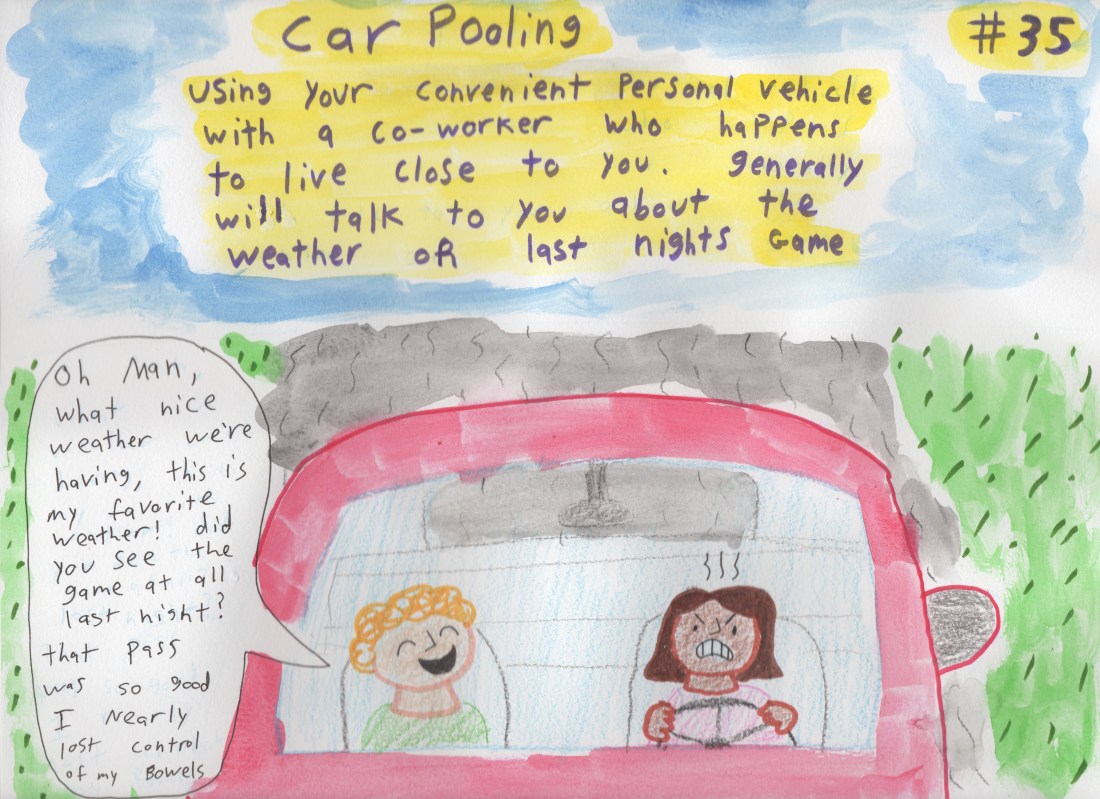 Car Pooling
#35
Using your convenient personal vehicle
with a co-worker who happens
to live close to you. generally
will talk to you about the
weather or last nights Game
Oh Man,
what nice
weather we're
having, this is
my favorite
weather! did
you see the
game at all
last night?
that pass
was so good
I nearly
lost control
of my Bowels